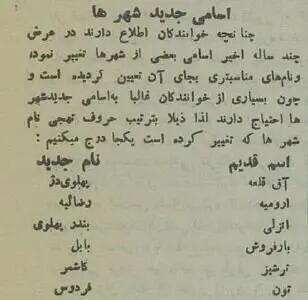 اسامی جدید شهر ها
چنانچه خوانندگان اطلاع دارند در عرض
چند ساله اخیر اسامی بعضی از شهرها تغییر نموده
ونام‌های مناسبتری بجای آن تعیین گردیده است و
چون بسیاری از خوانندگان غالبا به‌اسامی جدیدشهر
ها احتیاج دارند لذا ذیلا بترتیب حروف تهجی نام
شهر ها که تغییر کرده است یکجا درج میکنیم :
اسم قدیم نام جدید
آق قلعه پهلوی‌دژ
ارومیه رضائیه
انزلی بندر پهلوی
بارفروش بابل
ترشیز کاشمر
تون فردوس